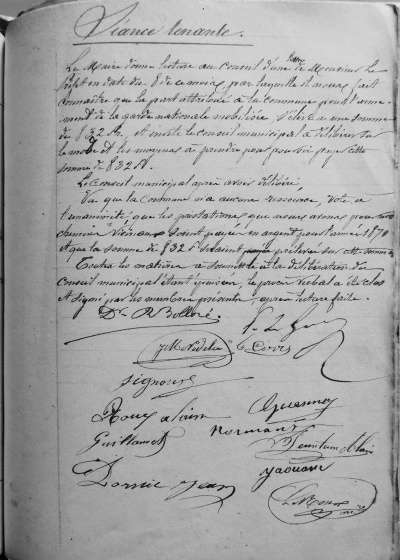 Séance tenante.
Le Maire donne lecture au Conseil d'une lettre de Monsieur le
Préfet en date du 8 de ce mois, par laquelle il nous fait
connaître que la part attribuée à la commune pour l'arme-
ment de la garde nationale mobilisée s'élève à une somme
de 832 f, et invite le conseil municipal à délibérer sur
le mode et les moyens à prendre pour pouvoir payer cette
somme de 832 f.
Le Conseil municipal après avoir délibéré,
Vu que la Commune n'a aucune ressource, vote à
l'unanimité que les prestations que nous avons pour nos
chemins vicinaux soient payées en argent pour l'année 1870
et que la somme de 832 f soient prélevée sur cette somme
Toutes les matières à soumettre à la délibération du
Conseil municipal étant épuisées, le procès verbal a été clos
et signé par les membres présents, après lecture faite.
Dr. R Bolloré.
Signour
Guillamet
Normant
Quennoy
Jean
yaouanc